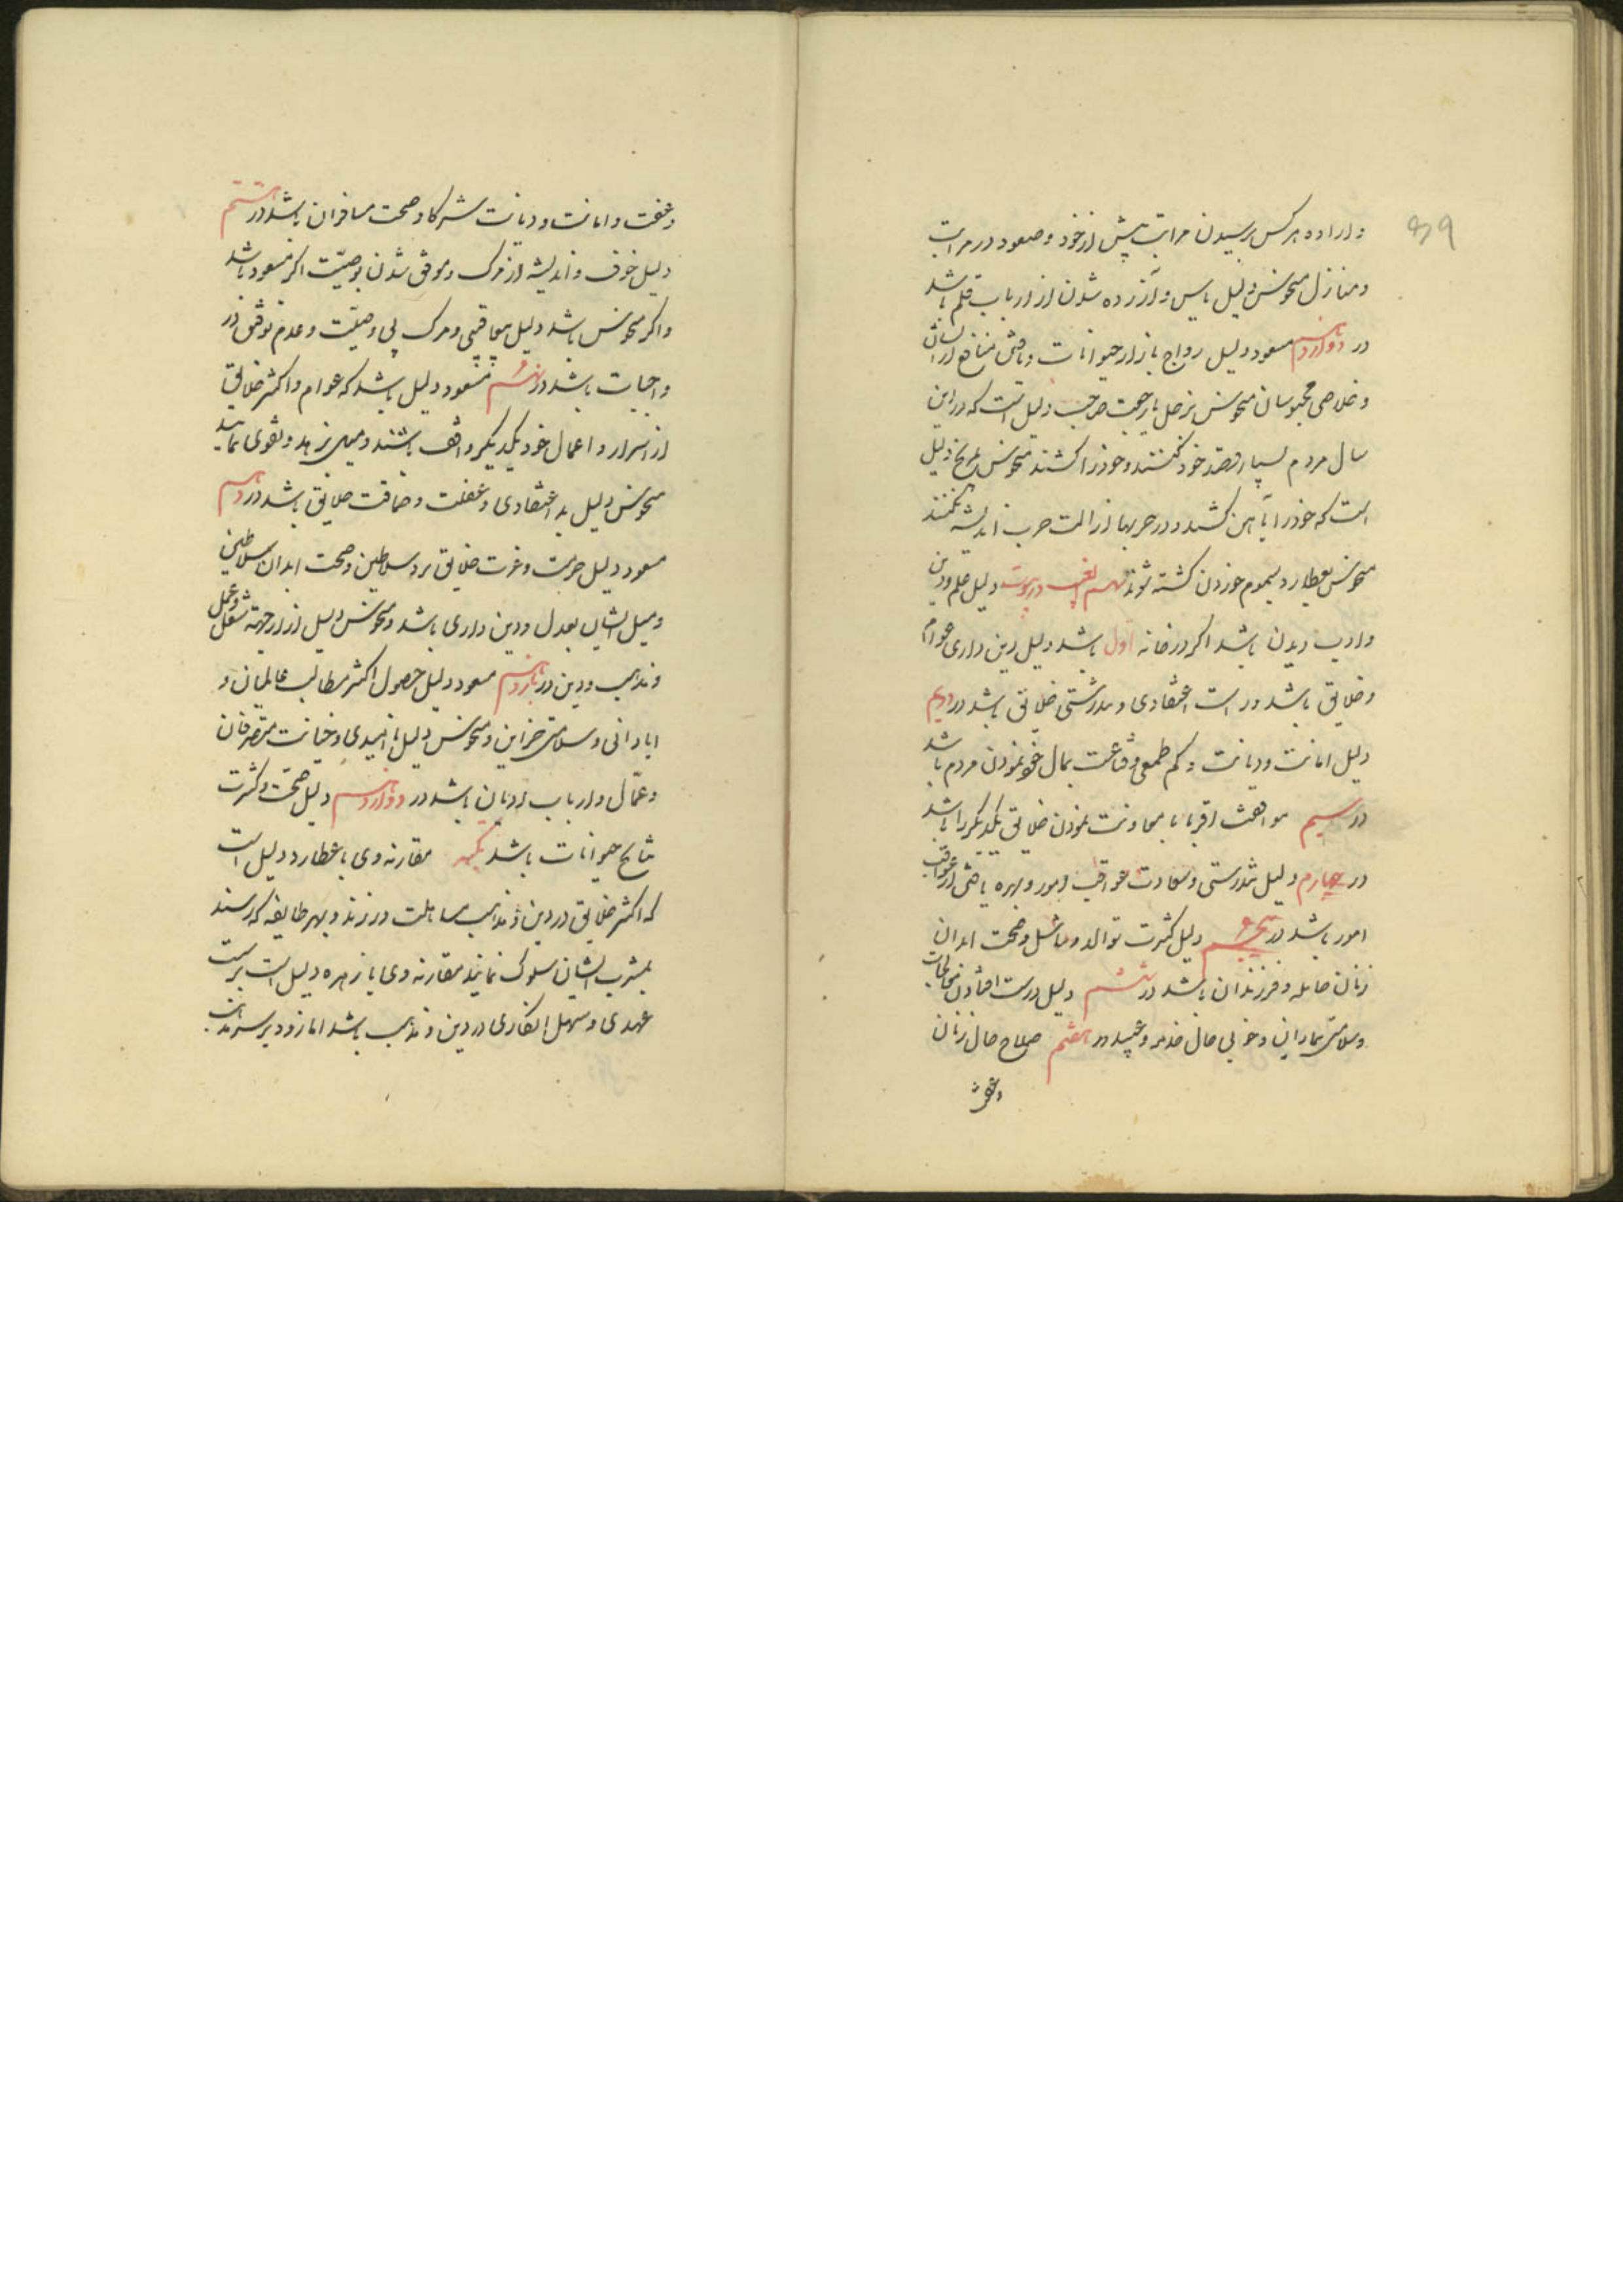 و اراده هر کس برسیدن مراتب پیش از خود و صعود در مراتب
و منازل منحوس دلیل یاس و آزرده شدن از ارباب قلم باشد
در دوازدهم مسعود دلیل رواج بازار حیوانات و یافتن منافع از ایشان
و خلاصی محبوسان منحوس بزحل یا رجعت صاحب دلیل است که در این
سال مردم بسیار قصد خود کنند و خود را کشند منحوس بمریخ دلیل
است که خود را بآهن کشند و در حربها از الت حرب اندیشه نکنند
منحوس بعطارد بسموم خوردن کشته شوند سهم الغیب در بیوت دلیل علم و دین
و ادب دیدن باشد اگر در خانه اول باشد دلیل دین داری عوام
و خلایق باشد و راست اعتقادی و تندرستی خلایق باشد در دویم
دلیل امانت و دیانت و کم طمعی و قناعت بمال خود نمودن مردم باشد
در سیم موافقت اقربا با معاونت نمودن خلایق یکدیگر را باشد
در چهارم دلیل تندرستی و سعادت عواقب امور و بهره یافتن از عواقب
امور باشد در پنجم دلیل کثرت توالد و تناسل و صحت ابدان
زنان حامله و فرزندان باشد در ششم دلیل درست افتادن معالجات
و سلامتی بیماران و خوبی حال خدم و عبید در هفتم صلاح حال زنان
و عفت
و عفت و امانت و دیانت شرکا و صحت مسافران باشد در هشتم
دلیل خوف و اندیشه از مرگ و موفق شدن بوصیت اگر مسعود باشد
و اگر منحوس باشد دلیل بیعاقبتی و مرک بی وصیت و عدم توفیق در
واجبات باشد در نهم مسعود دلیل باشد که عوام و اکثر خلایق
از اسرار و اعمال خود یکدیگر واقف باشند و میل بزهد و تقوی نمایند
منحوس دلیل بد اعتقادی و غفلت و حماقت خلایق باشد در دهم
مسعود دلیل حرمت و عزت خلایق نزد سلاطین و صحت ابدان سلاطین
و میل ایشان بعدل و دین داری باشد و منحوس دلیل ازار جهة شغل و عمل
و مذهب و دین در یازدهم مسعود دلیل حصول اکثر مطالب عالمیان و
ابادانی و سلامتی خزاین و منحوس دلیل ناامیدی و خیانت متصرفان
و عمال و ارباب ادیان باشد در دوازدهم دلیل صحت و کثرت
نتایج حیوانات باشد مقارنه وی با عطارد دلیل است
که اکثر خلایق در دین و مذهب مساهلت ورزند و بهر طایفه که رسند
بمشرب ایشان سلوک نمایند مقارنه وی با زهره دلیل است بر سست
عهدی و سهل انکاری در دین و مذهب باشد اما زود بر سر مذهب